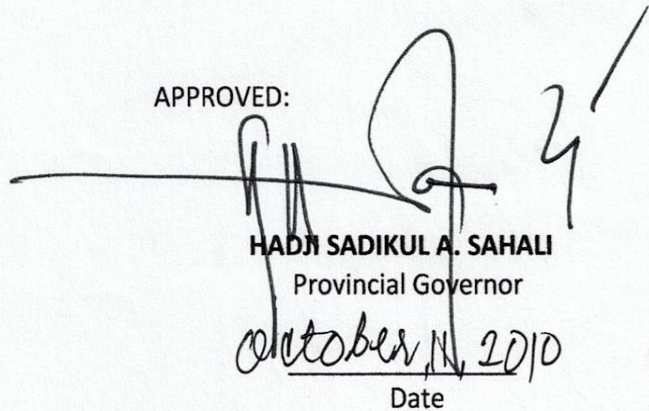 APPROVED:
HADJI SADIKUL A. SAHALI
Provincial Governor
October 11, 2010
Date